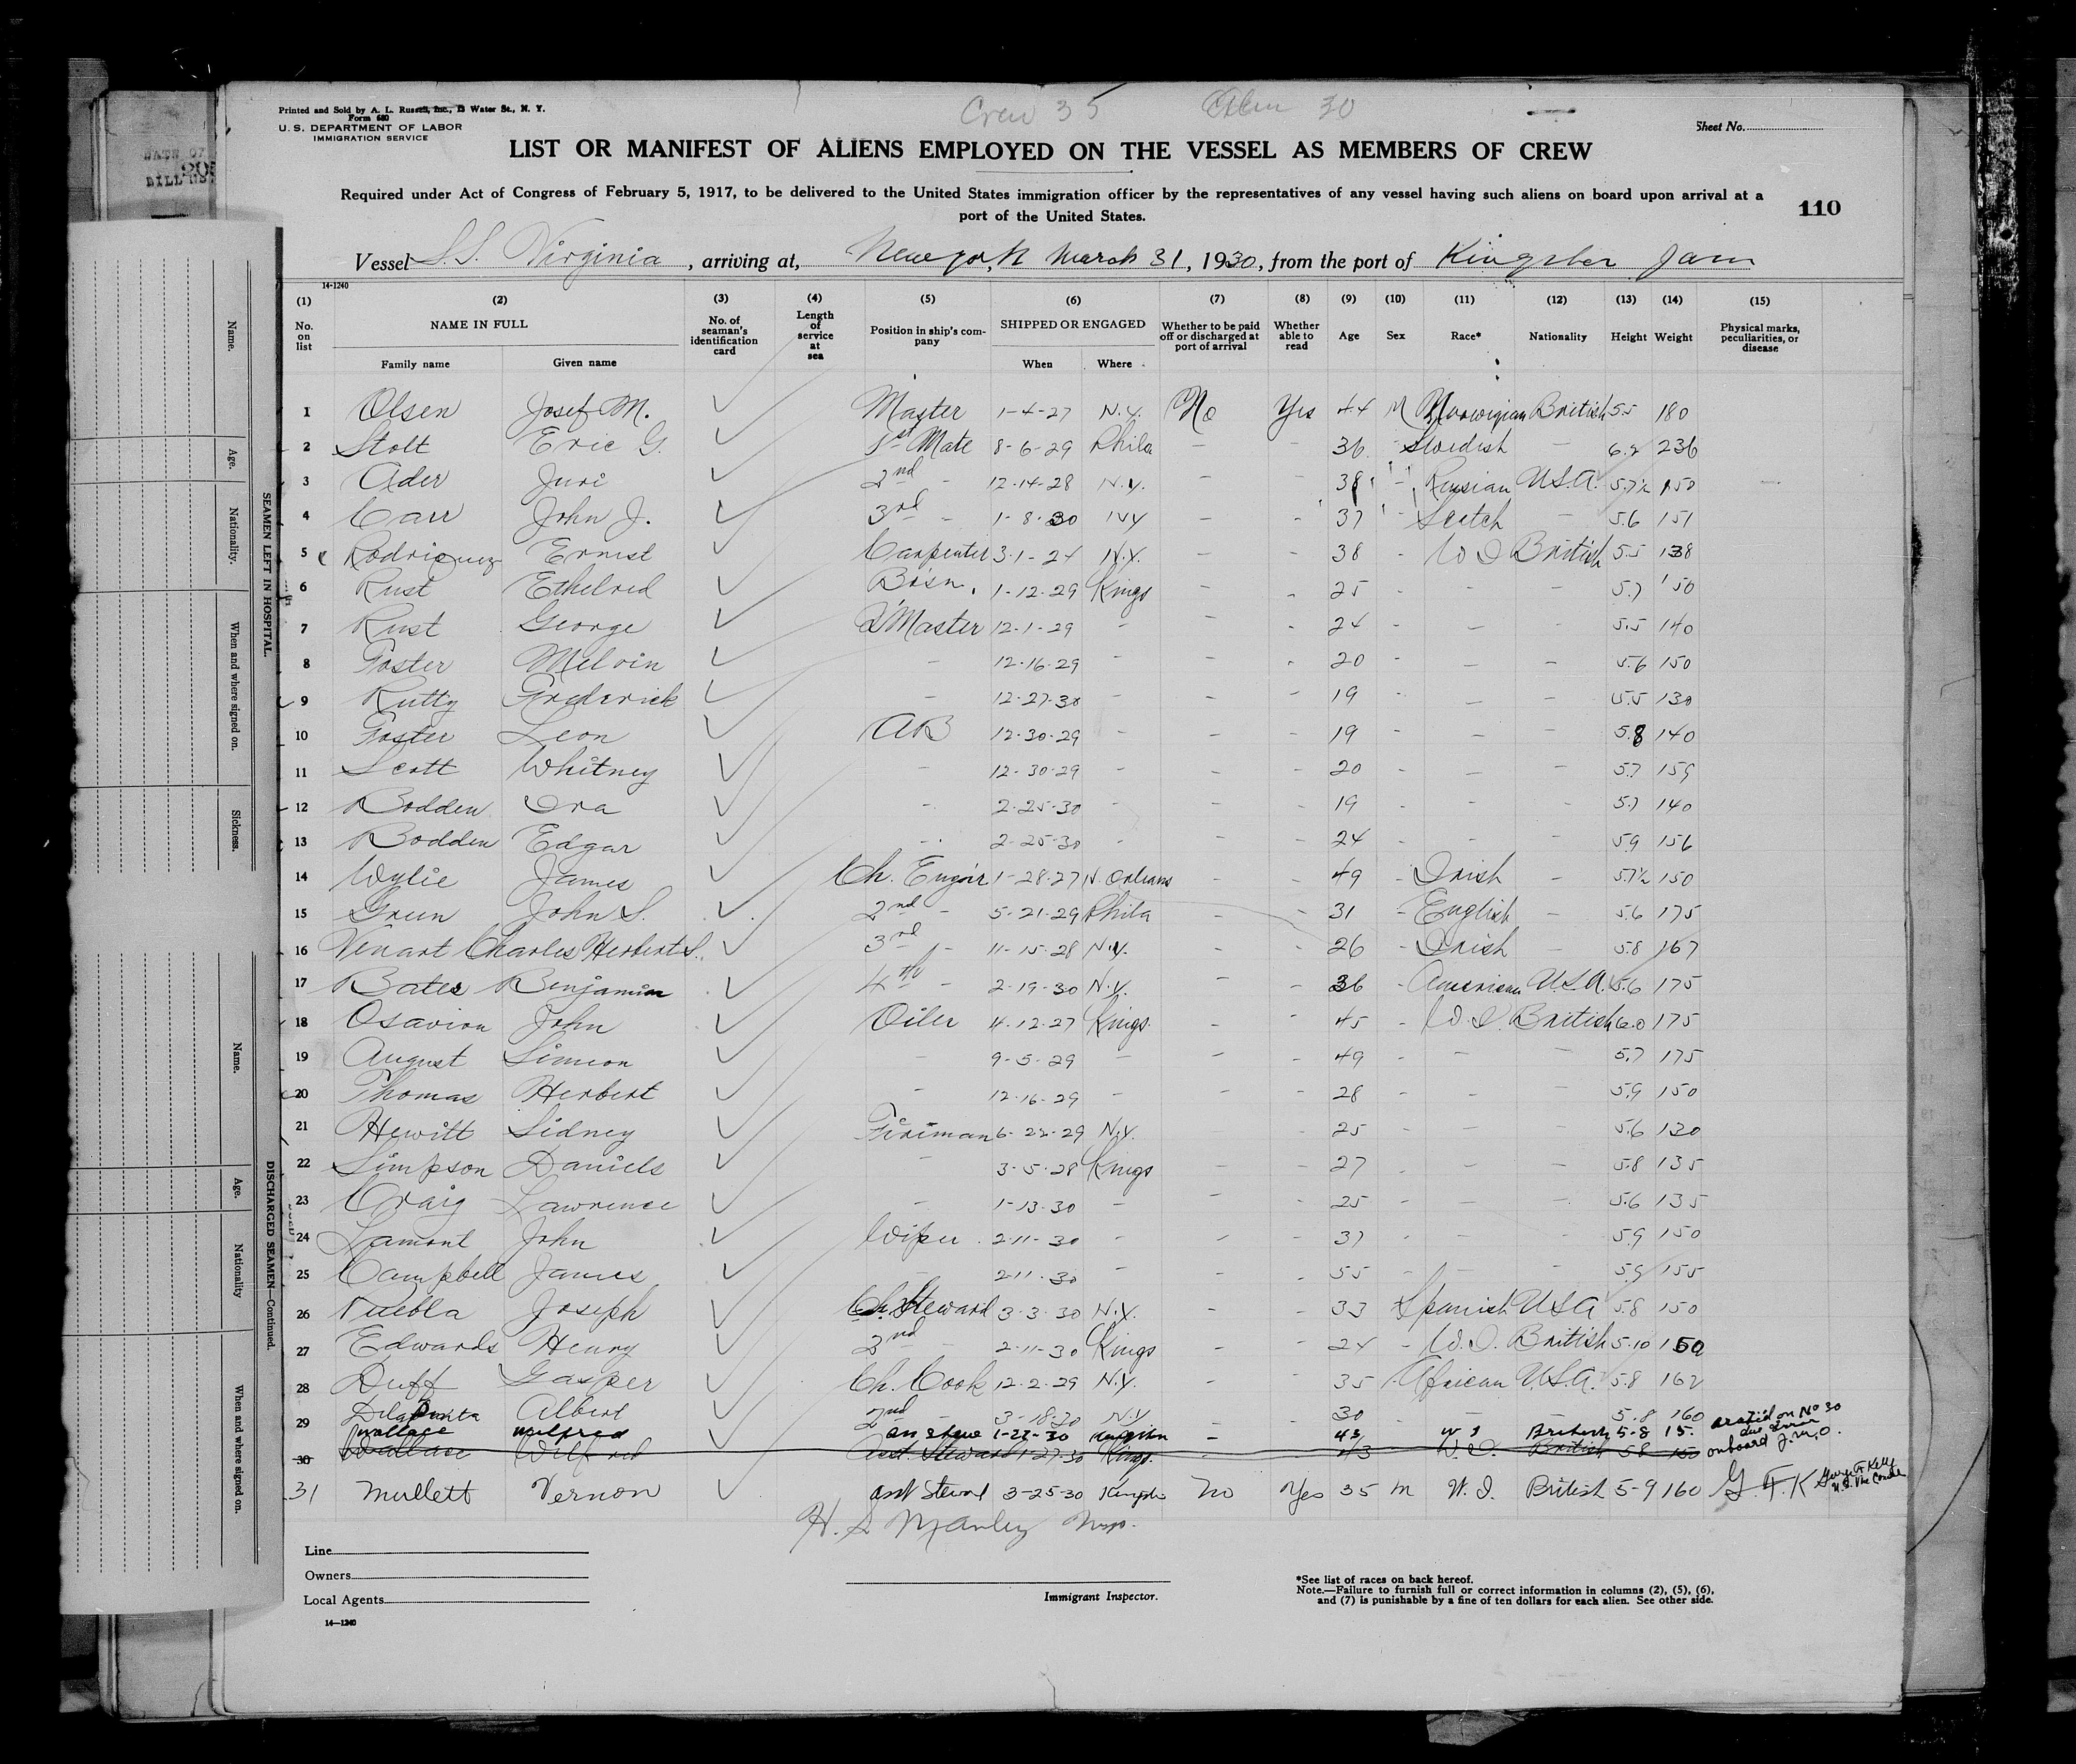 Crew 35 Alien 30
Printed and Sold by A. L. Russell, Inc., 13 Water St., N. Y.
Form 680
U. S. DEPARTMENT OF LABOR
IMMIGRATION SERVICE
Sheet No.
LIST OR MANIFEST OF ALIENS EMPLOYED ON THE VESSEL AS MEMBERS OF CREW
Required under Act of Congress of February 5, 1917, to be delivered to the United States immigration officer by the representatives of any vessel having such aliens on board upon arrival at a
port of the United States.
110
Vessel S.S. Virginia, arriving at, New york March 31, 1930, from the port of Kingston Jam
14-1240
(1) (2) (3) (4) (5) (6) (7) (8) (9) (10) (11) (12) (13) (14) (15)
No. on list NAME IN FULL Family name Given name No. of seaman's identification card Length of service at sea Position in ship's company SHIPPED OR ENGAGED When Where Whether to be paid off or discharged at port of arrival Whether able to read Age Sex Race* Nationality Height Weight Physical marks, peculiarities, or disease
1 Olsen Josef M. Master 1-4-27 N.Y. No Yes 44 M Norwigian British 5.5 180
2 Stolt Eric G. 1st Mate 8-6-29 Phila - - 36 Swedish - 6.2 236
3 Ader Juri 2nd - 12-14-28 N.Y. 38 - Russian U.S.A. 5.7½ 150
4 Carr John J. 3rd - 1-8-30 NY - - 37 - Scotch - 5.6 151
5 Rodriquez Ernest Carpenter 3-1-24 N.Y. - - 38 - W I British 5.5 138
6 Rust Ethelred Bosn. 1-12-29 Kings - - 25 - - - 5.7 150
7 Rust George Q Master 12-1-29 - - - 24 - - - 5.5 140
8 Foster Melvin - 12-16-29 - - - 20 - - - 5.6 150
9 Rutty Frederick - 12-27-30 - - - 19 - - - 5.5 130
10 Foster Leon AB 12-30-29 - - - 19 - - - 5.8 140
11 Scott Whitney - 12-30-29 - - - 20 - - - 5.7 159
12 Bodden Ira - 2-25-30 - - - 19 - - - 5.7 140
13 Bodden Edgar - 2-25-30 - - - 24 - - - 5.9 156
14 Wylie James Ch. Engnir 1-28-27 N. Orleans - - 49 - Irish - 5.7½ 150
15 Green John S. 2nd - 5-21-29 Phila - - 31 - English - 5.6 175
16 Venart Charles Herbert S. 3rd - 11-15-28 N.Y. - 26 - Irish 5.8 167
17 Bates Benjamin 4th - 2-19-30 N.Y. - - 36 - American U.S.A. 5.6 175
18 Osavion John Oiler 4-12-27 Kings. - - 45 - W.I. British 6.0 175
19 August Simeon - 9-5-29 - - - 49 - - - 5.7 175
20 Thomas Herbert - 12-16-29 - - - 28 - - - 5.9 150
21 Hewitt Sidney Fireman 6-22-29 N.Y. - 25 - - - 5.6 130
22 Simpson Daniels - 3-5-28 Kings - - 27 - - - 5.8 135
23 Craig Lawrence - 1-13-30 - - - 25 - - - 5.6 135
24 Lamont John Wiper 2-11-30 - - - 37 - - - 5.9 150
25 Campbell James - 2-11-30 - - - 55 - - - 5.9 155
26 Puebla Joseph Ch. Steward 3-3-30 N.Y. - - 33 Spanish U.S.A 5.8 150
27 Edwards Henry 2nd - 2-11-30 Kings - - 24 - W.I. British 5-10 150
28 Duff Gasper Ch. Cook 12-2-29 N.Y. - - 35 African U.S.A. 5.8 162
29 Albert 2nd - 3-18-30 N.Y - 30 - - 5.8 160
Wallace Wilfred 1-27-30 Kingston - 43 W I British 5-8 15.
on No 30 due error onboard J.M.O.
30 Wallace Wilfred Asst. Steward 1-27-30 Kings. 43 W.I. British 5.8 150
31 Mullett Vernon asst Steward 3-25-30 Kingston No Yes 35 m W. I. British 5-9 160 G. F. K George F Kelly
H. S Manley Insp.
Line
Owners
Local Agents
14—1240
Immigrant Inspector.
*See list of races on back hereof.
Note.—Failure to furnish full or correct information in columns (2), (5), (6),
and (7) is punishable by a fine of ten dollars for each alien. See other side.
SEAMEN LEFT IN HOSPITAL.
Name. Age. Nationality. When and where signed on. Sickness.
DISCHARGED SEAMEN—Continued.
Name. Age. Nationality When and where signed on.